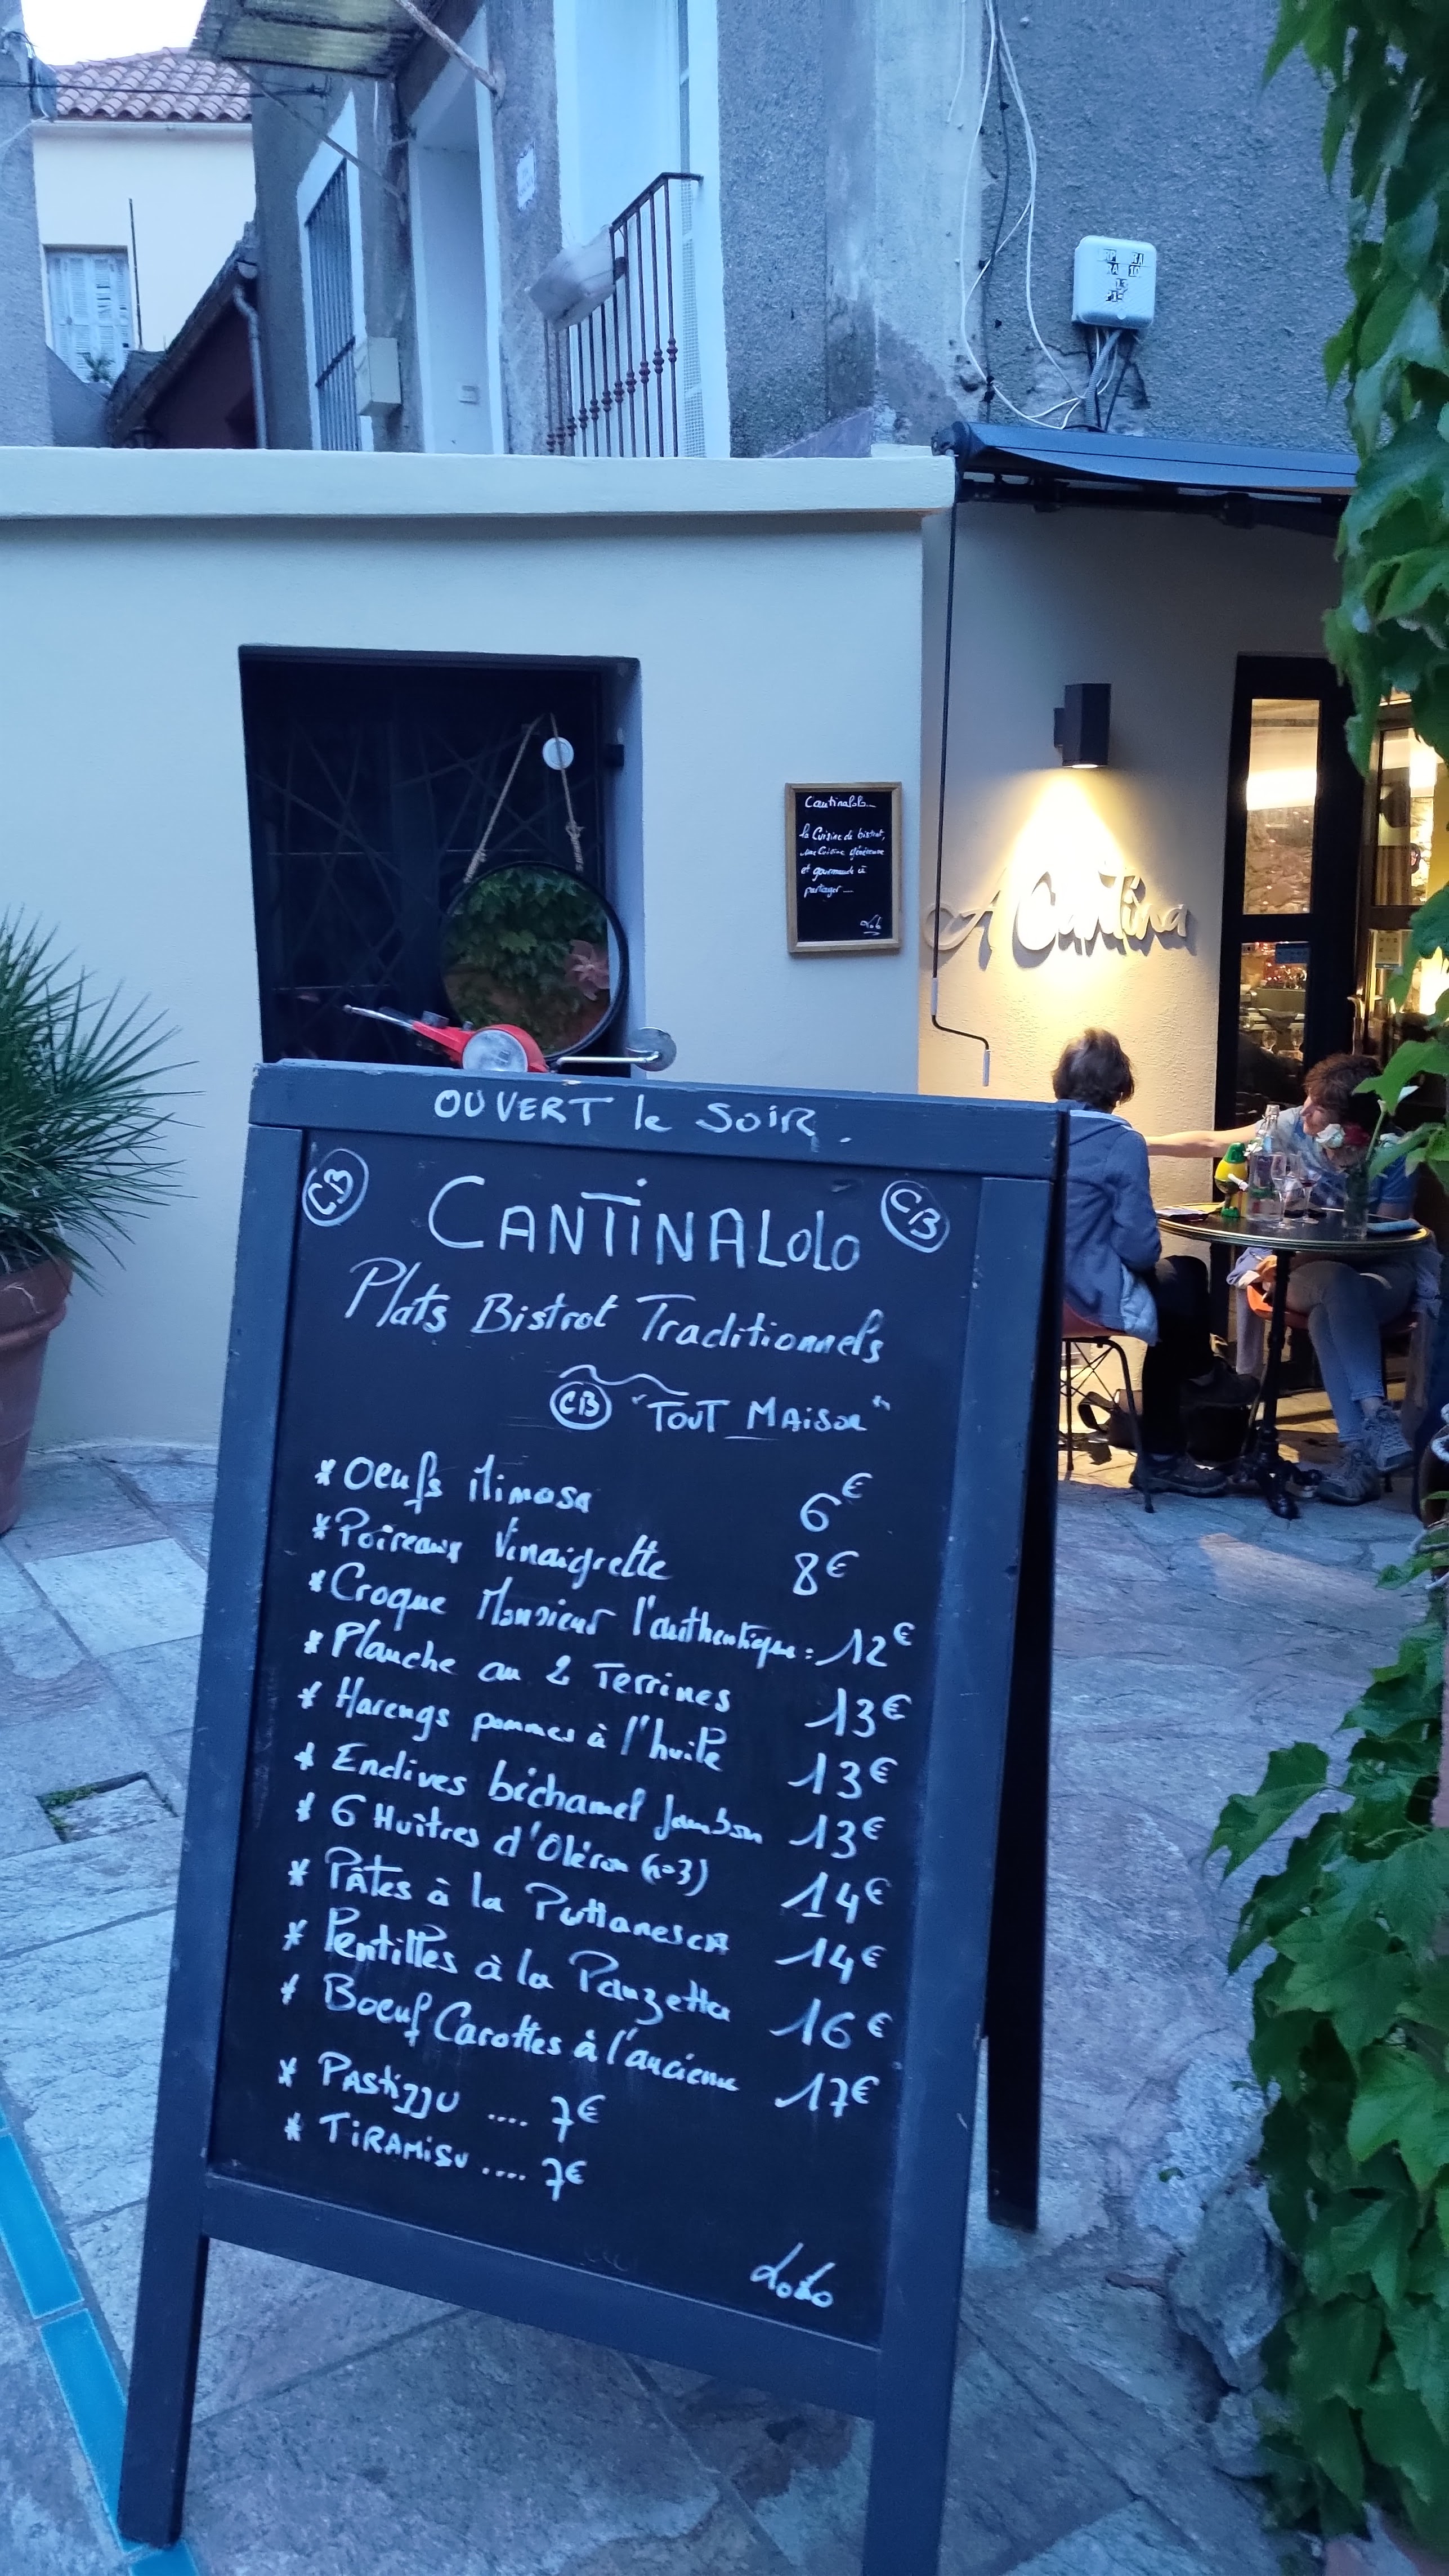 Cantinalolo...
la Cuisine de bistrot,
une Cuisine généreuse
et gourmande à
partager...
Lolo
A Cantina
OUVERT le SOIR.
CB CANTINALOLO CB
Plats Bistrot Traditionnels
CB "TOUT MAISON"
* Oeufs Mimosa 6€
* Poireaux Vinaigrette 8€
* Croque Monsieur l'authentique: 12€
* Planche au 2 Terrines 13€
* Harengs pommes à l'huile 13€
* Endives béchamel Jambon 13€
* 6 Huîtres d'Oléron (n°3) 14€
* Pâtes à la Puttanesca 14€
* Lentilles à la Panzetta 16€
* Boeuf Carottes à l'ancienne 17€
* PASTIZZU .... 7€
* TIRAMISU .... 7€
Lolo